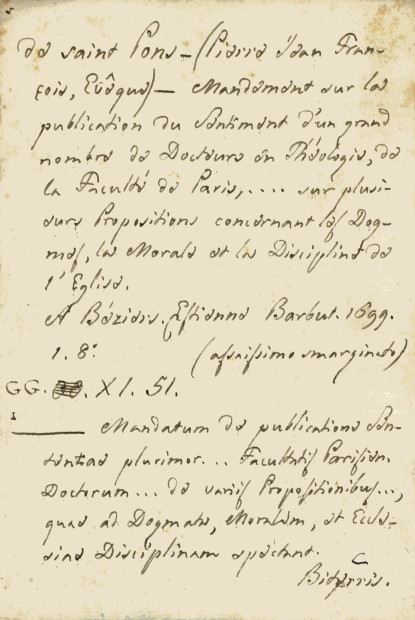 de saint Pons — (Pierre Jean Fran-
çois, Evêque) — Mandement sur la
publication du Sentiment d'un grand
nombre de Docteurs en Théologie, de
la Faculté de Paris, .... sur plusi-
eurs Propositions concernant les Dog-
mes, la Morale et la Discipline de
l'Eglise.
A Béziers. Estienne Barbut. 1699.
1. 8.° (assaissimo smarginato)
GG. XI. 51.
1
——— Mandatum de publicatione Sen-
tentiae plurimor... Facultatis Parisien.
Doctorum... de variis Propositionibus...,
quae ad Dogmata, Moralem, et Eccle-
siae Disciplinam spectant.
Biterris.